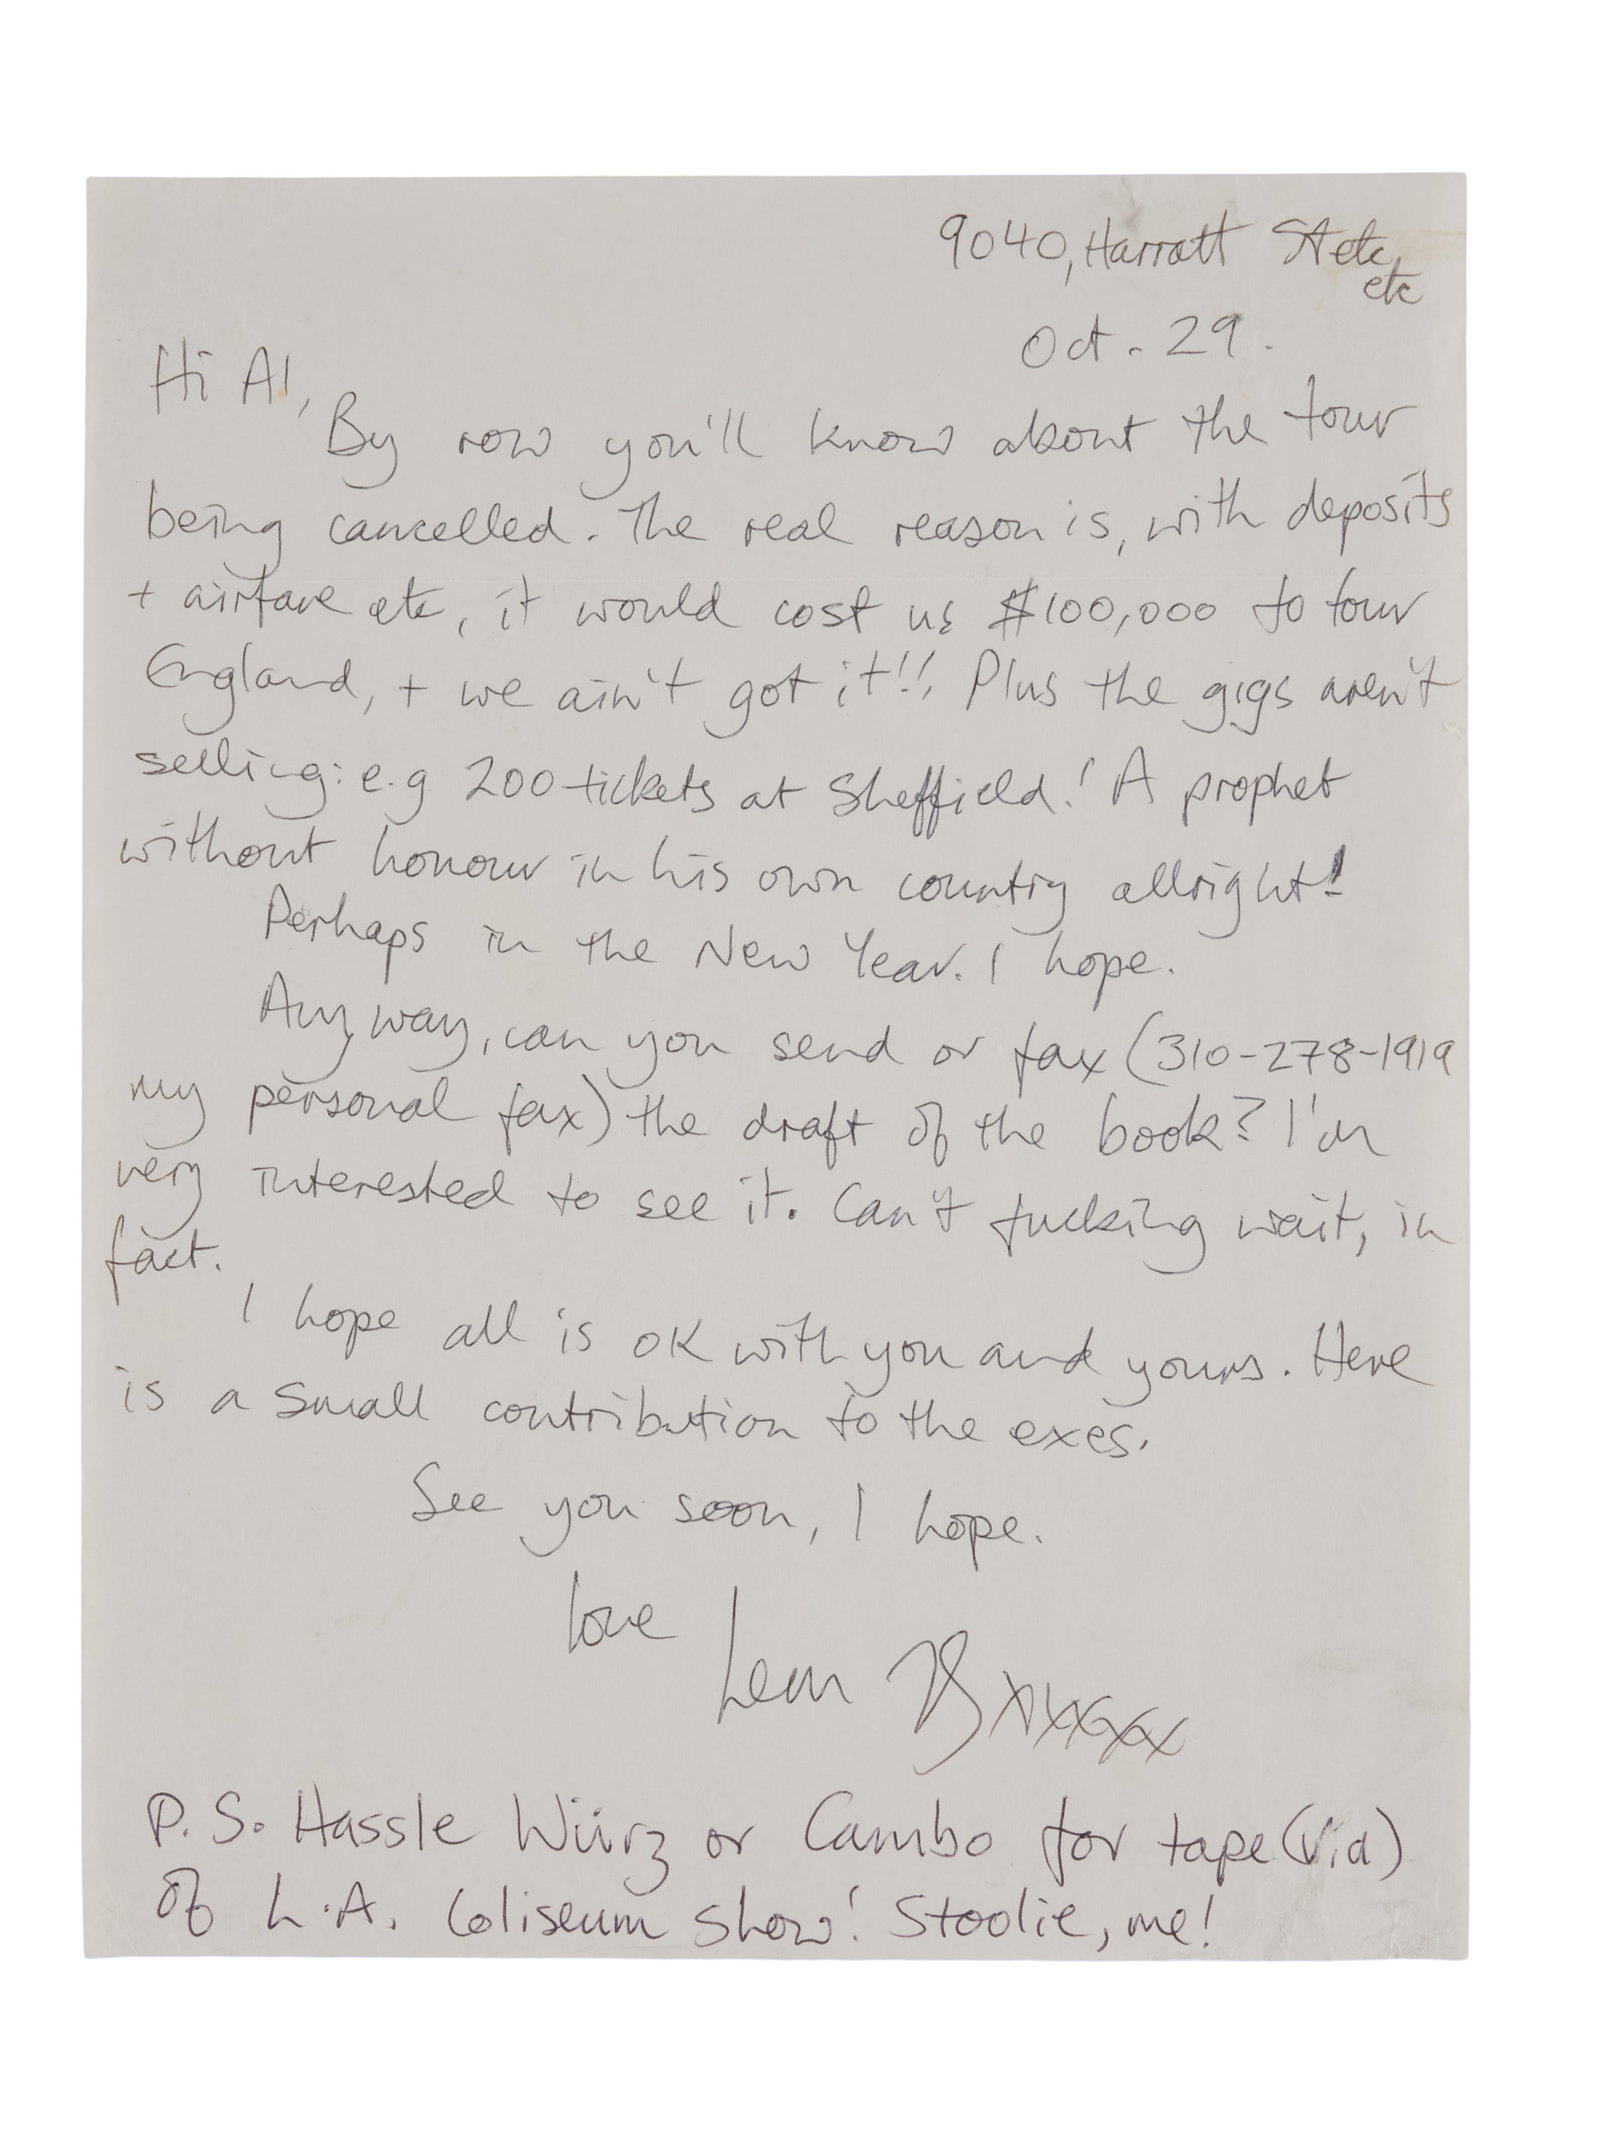 9040, Harratt St etc,
etc
Oct. 29.
Hi Al,
By now you'll know about the tour
being cancelled. The real reason is, with deposits
+ airfare etc, it would cost us $100,000 to tour
England, + we ain't got it!! Plus the gigs aren't
selling: e.g 200 tickets at Sheffield! A prophet
without honour in his own country allright!
Perhaps in the New Year. I hope.
Anyway, can you send or fax (310-278-1919
my personal fax) the draft of the book? I'm
very interested to see it. Can't fucking wait, in
fact.
I hope all is OK with you and yours. Here
is a small contribution to the exes.
See you soon, I hope.
love
Lem
P.S. Hassle Würz or Cambo for tape (Vid)
of L.A. Coliseum show! Stoolie, me!